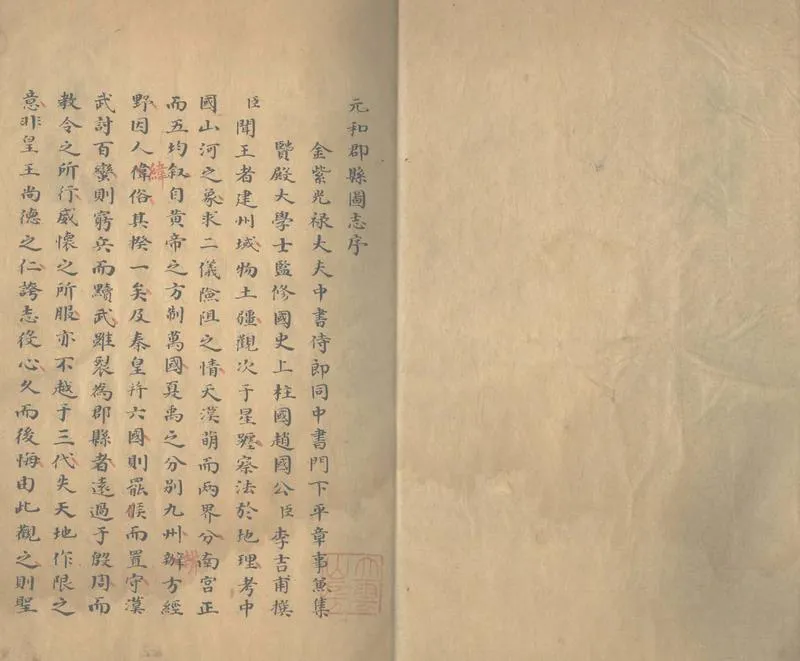 元和郡縣圖志序
金紫光祿大夫中書侍郎同中書門下平章事兼集
賢殿大學士監修國史上柱國趙國公臣李吉甫撰
臣聞王者建州域物土疆觀次于星躔察法於地理考中
國山河之象求二儀險阻之情天漢萌而兩界分南宮正
而五均叙自黃帝之方制萬國夏禹之分別九州辦方經
野因人偉俗其揆一矣及秦皇并六國則罷侯而置守漢
緯
武討百蠻則窮兵而黷武雖裂為郡縣者遠過于殷周而
教令之所行威懷之所服亦不越于三代失天地作限之
意非皇王尚德之仁誇志役心久而後悔由此觀之則聖